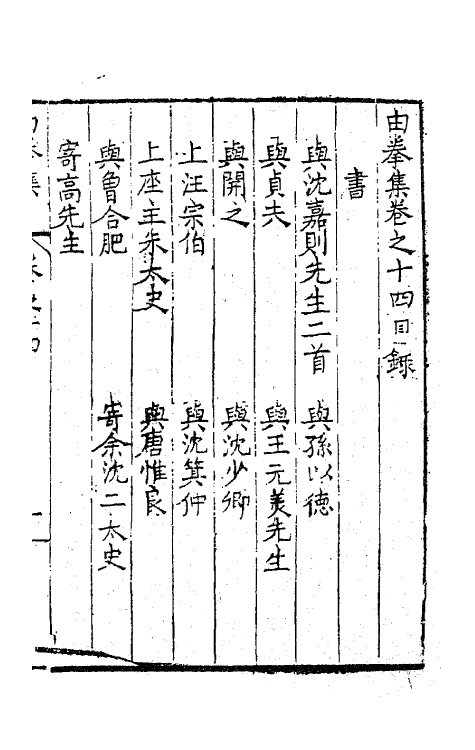 由拳集卷之十四目錄
書
與沈嘉則先生二首　與孫以德
與貞夫　與王元美先生
與開之　與沈少卿
上汪宗伯　與沈箕仲
上座主朱太史　與唐惟良
與魯合肥　寄余沈二太史
寄高先生